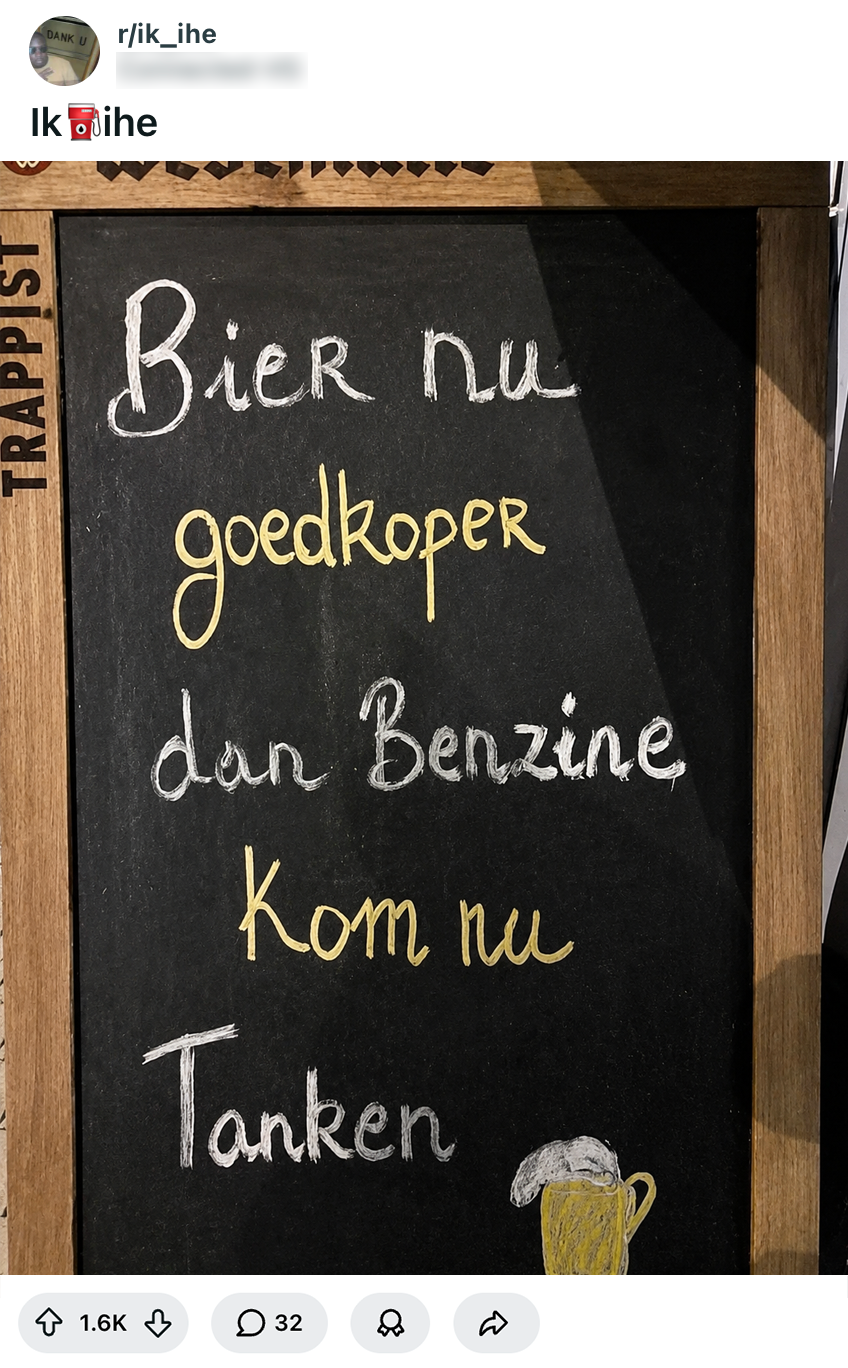 DANK U
r/ik_ihe
Ik⛽ihe
TRAPPIST
Bier nu
goedkoper
dan Benzine
Kom nu
Tanken
1.6K
32